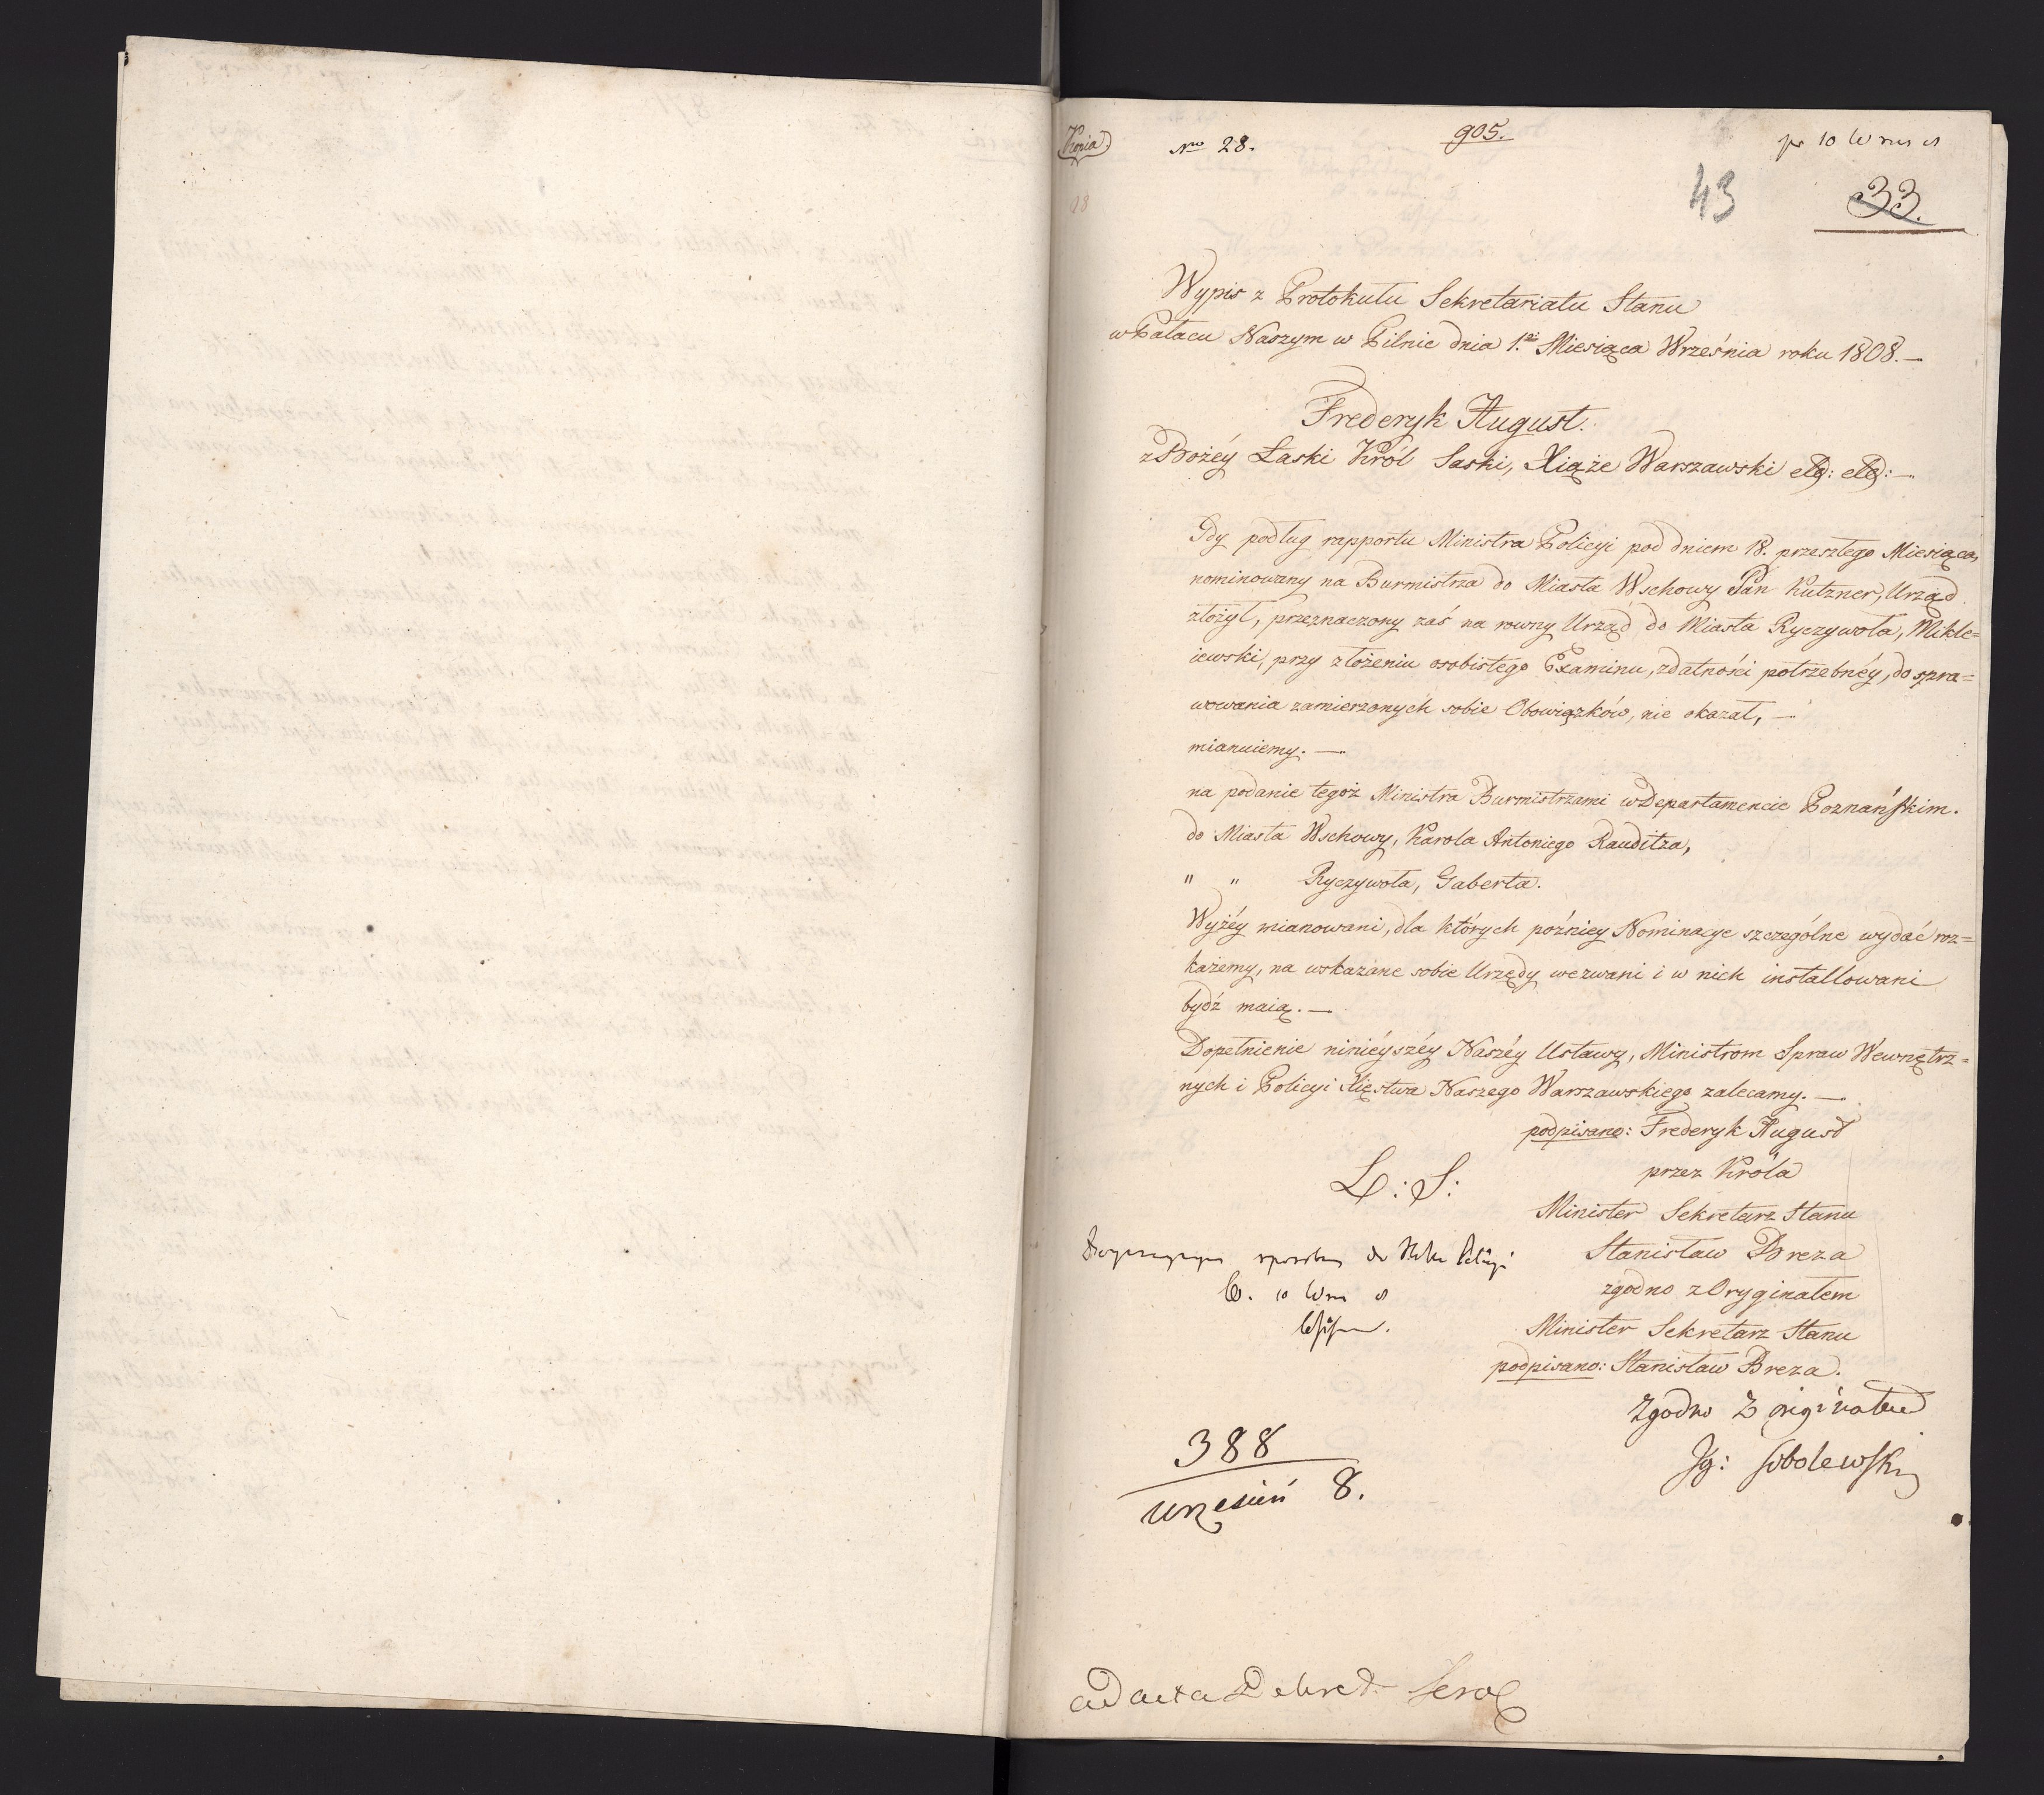 Kopia
No 28.
905.
pr 10 Wrus 8
18
43
33.
Wypis z Protokułu Sekretariatu Stanu
w Pałacu Naszym w Pilnic dnia 1. Miesiąca Września roku 1808. —
Frederyk August.
z Bożéy Łaski Król Saski, Xiąże Warszawski etc: etc: —
Gdy podług rapportu Ministra Policyi pod dniem 18. przeszłego Miesiąca,
nominowany na Burmistrza do Miasta Wschowy Pan Kutzner, Urząd
złożył, przeznaczony zaś na rowny Urząd do Miasta Ryczywoła, Mikle=
iewski, przy złożeniu osobistego Examinu, zdatności potrzebnéy, do spra=
wowania zamierzonych sobie Obowiązków, nie okazał, —
mianuiemy. —
na podanie tegoż Ministra Burmistrzami w Departamencie Poznańskim.
do Miasta Wschowy, Karola Antoniego Rauditza,
" " Ryczywoła, Gaberta.
Wyżéy mianowani, dla których późniey Nominacye szczególne wydać roz=
każemy, na wskazane sobie Urzędy wezwani i w nich installowani
bydź maią. —
Dopełnienie ninieyszéy Naszéy Ustawy, Ministrom Spraw Wewnętrz=
nych i Policyi Xięstwa Naszego Warszawskiego zalecamy. —
podpisano: Frederyk August
przez Króla
L: S:
Minister Sekretarz Stanu
Stanisław Breza
zgodno z Oryginałem
Minister Sekretarz Stanu
podpisano: Stanisław Breza.
Zgodno z originałem
Ig: Sobolewski
sposobem do Policyi
10 8
388
wrzesień 8.
ad acta Dekret.